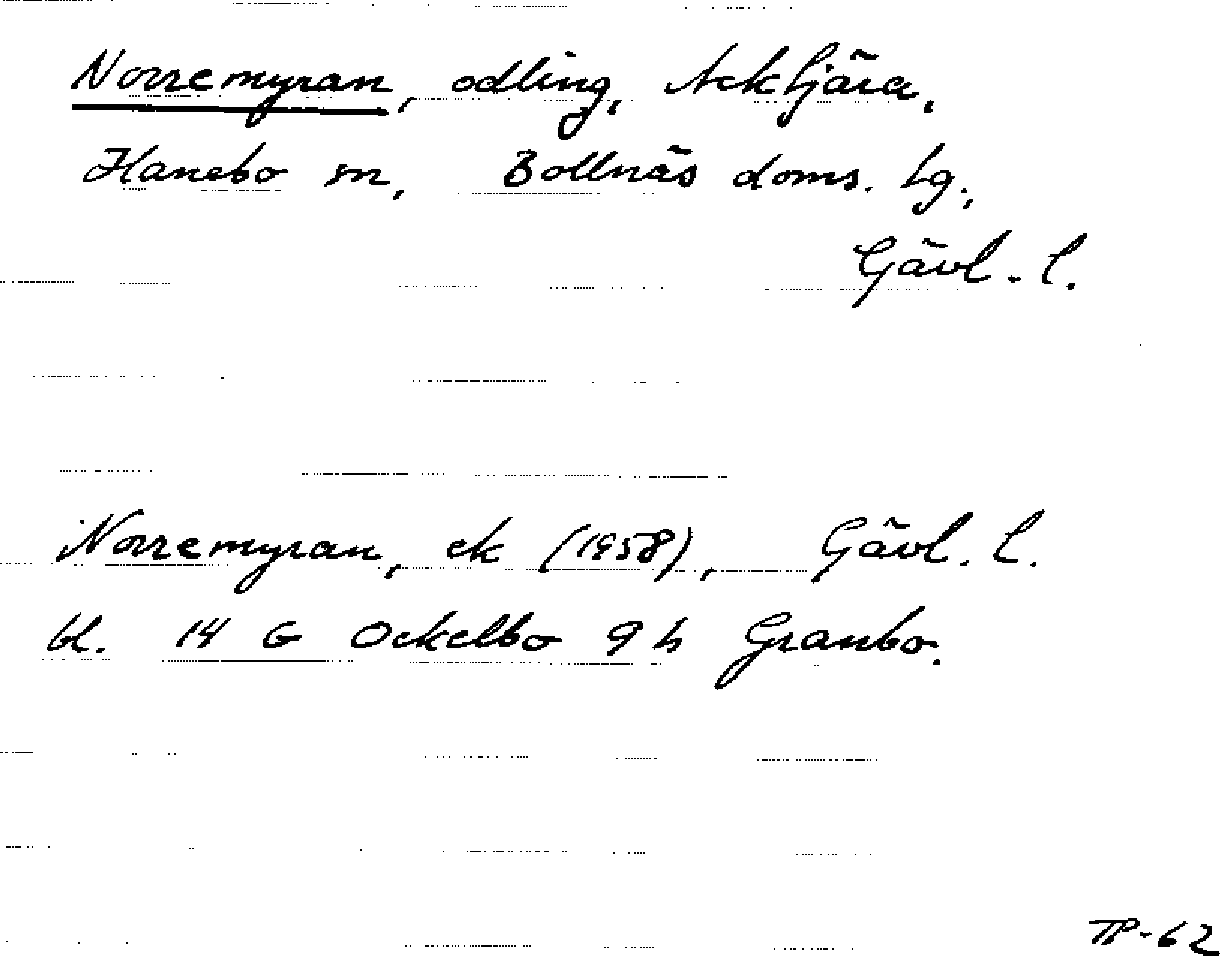 Norremyran, odling, Acktjära,
Hanebo sn, Bollnäs doms. tg,
Gävl. l.
Norremyran, ek (1958), Gävl. l.
bl. 14 G Ockelbo 9 h Granbo.
TP-62